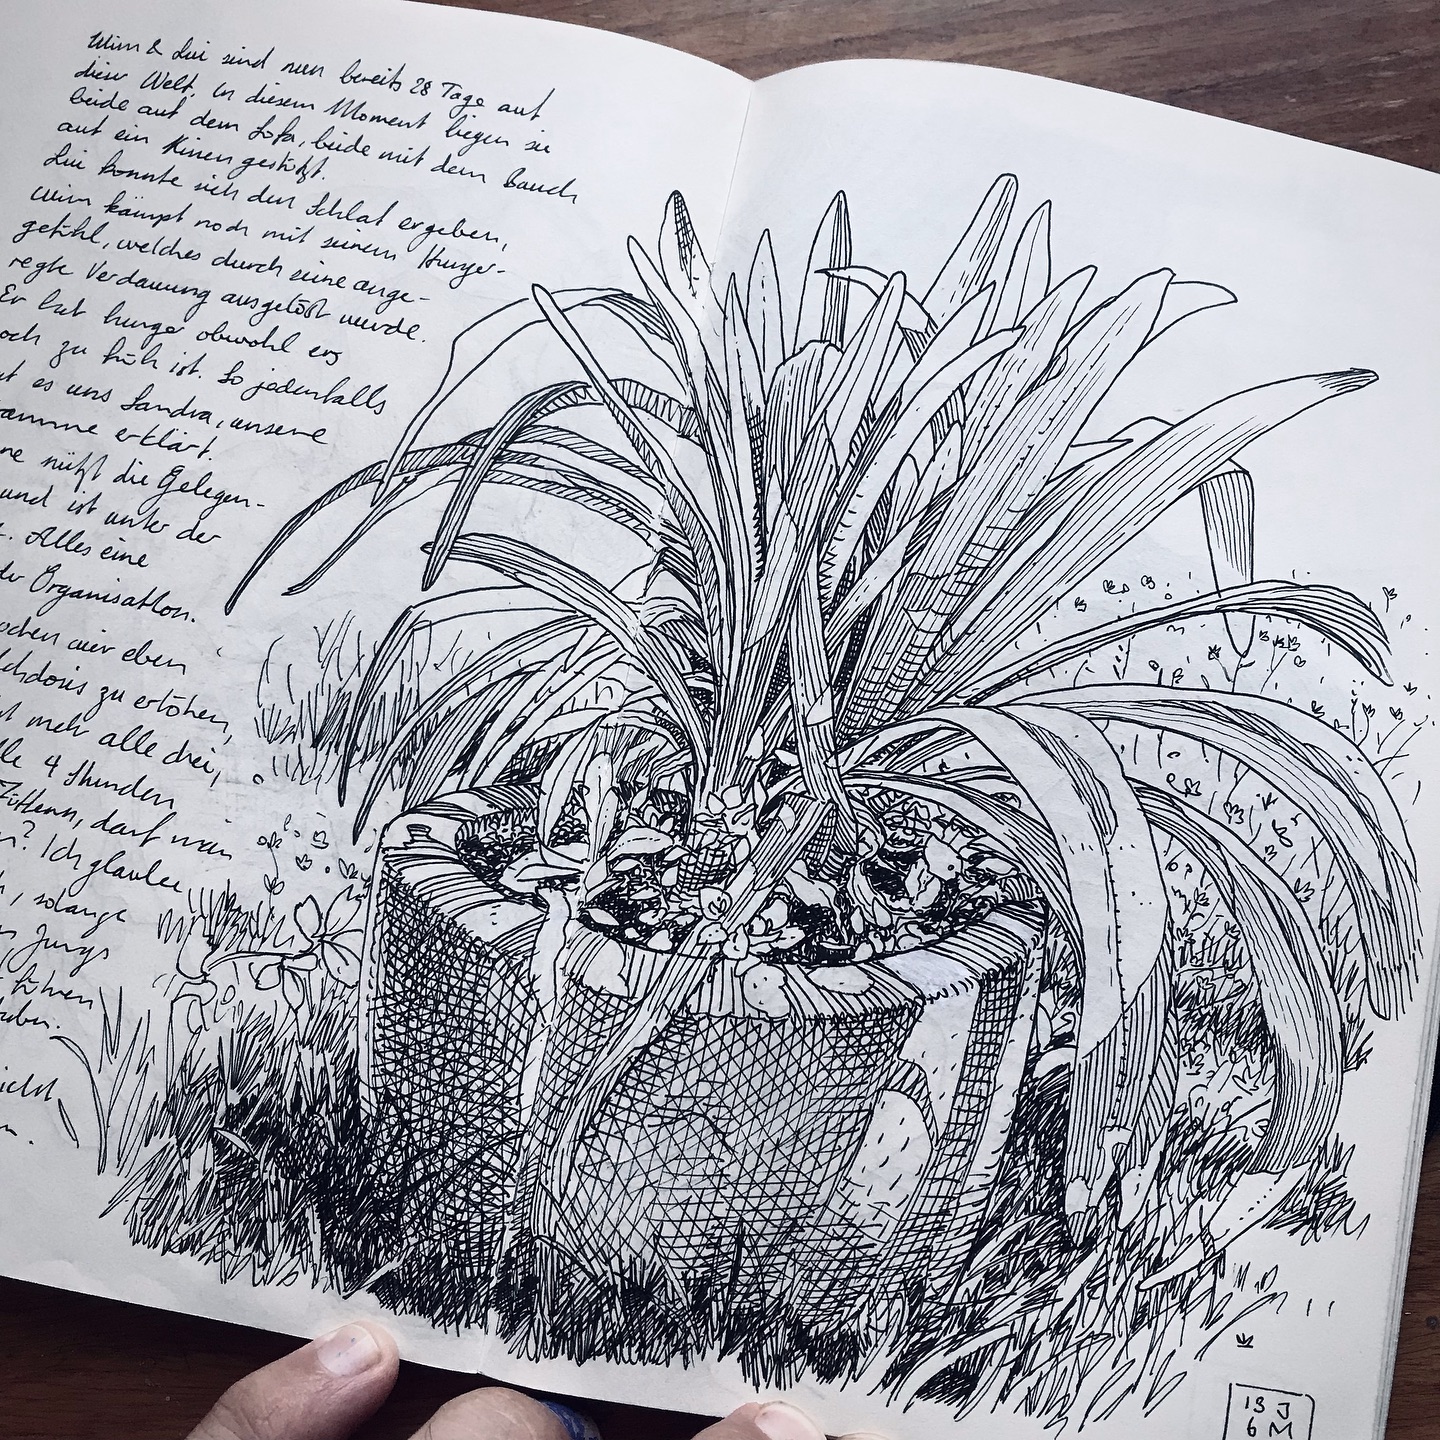 Wim & Lui sind nun bereits 28 Tage auf
dieser Welt. In diesem Moment liegen sie
beide auf dem Sofa, beide mit dem Bauch
auf ein Kissen gestützt.
Lui konnte sich den Schlaf ergeben,
Wim kämpt noch mit seinem Hunger-
gefühl, welches durch eine ange-
regte Verdauung ausgelöst wurde.
Er hat hunger obwohl es
och zu früh ist. So jedenfalls
at es uns Sandra, unsere
amme erklärt.
ne nützt die Gelegen-
und ist unter der
Alles eine
der Organisation.
ochen wir eben
chdosis zu erhöhen,
t mehr alle drei,
lle 4 Stunden
Füttern, darf man
n? Ich glaube
, solange
n Jungs
führen
aben.
icht
n.
13 J
6 M